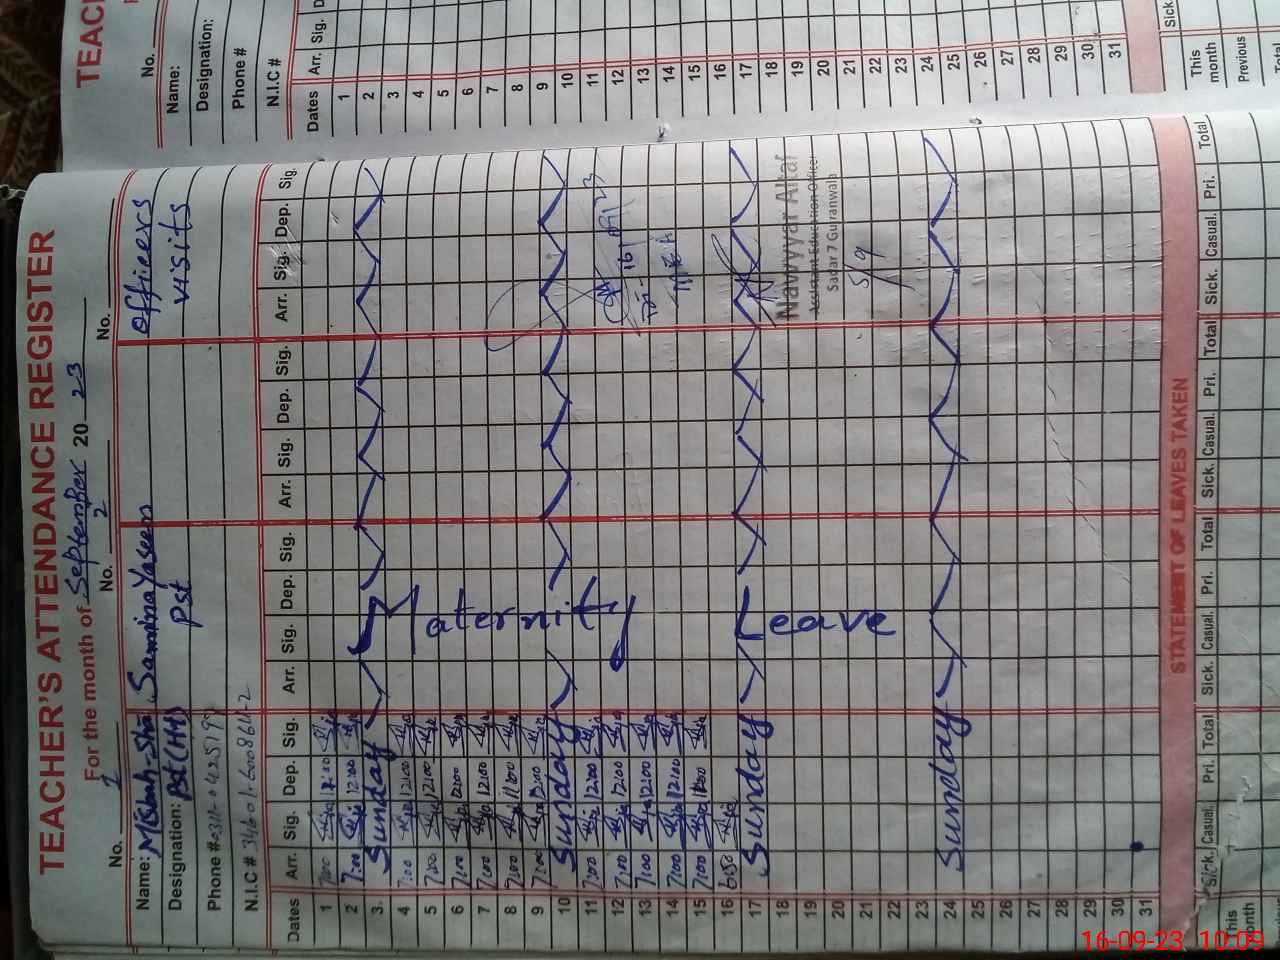 TEACHER'S ATTENDANCE REGISTER
For the month of September 20 23
No. 1 No. 2 No.
Name: Misbah-Sha Samina Yaseen officers
Designation: Pst (HH) Pst visits
Phone #
N.I.C #
Dates Arr. Sig. Dep. Sig. Arr. Sig. Dep. Sig. Arr. Sig. Dep. Sig. Arr. Sig. Dep. Sig.
1 7:00 12:00
2 7:00 12:00
3. Sunday
4 7:00 12:00
5 7:00 12:00
6 7:00 12:00
7 7:00 12:00
8 7:00 11:00
9 7:00 12:00
10 Sunday
11 7:00 12:00
12 7:00 12:00
13 7:00 12:00
14 7:00 12:00
15 7:00
16 6:50
17 Sunday
18
19
20
21
22
23
24 Sunday
25
26
27
28
29
30
31
Maternity Leave
Navyyar Altaf
Assistant Education Officer
Sadar 7 Gujranwala
5/9
STATEMENT OF LEAVES TAKEN
Sick. Casual. Pri. Total Sick. Casual. Pri. Total Sick. Casual. Pri. Total Sick. Casual. Pri. Total
This month
TEAC
No.
Name:
Designation:
Phone #
N.I.C #
Dates Arr. Sig.
1
2
3
4
5
6
7
8
9
10
11
12
13
14
15
16
17
18
19
20
21
22
23
24
25
26
27
28
29
30
31
Sick.
This month
Previous
Total
16-09-23 10:09